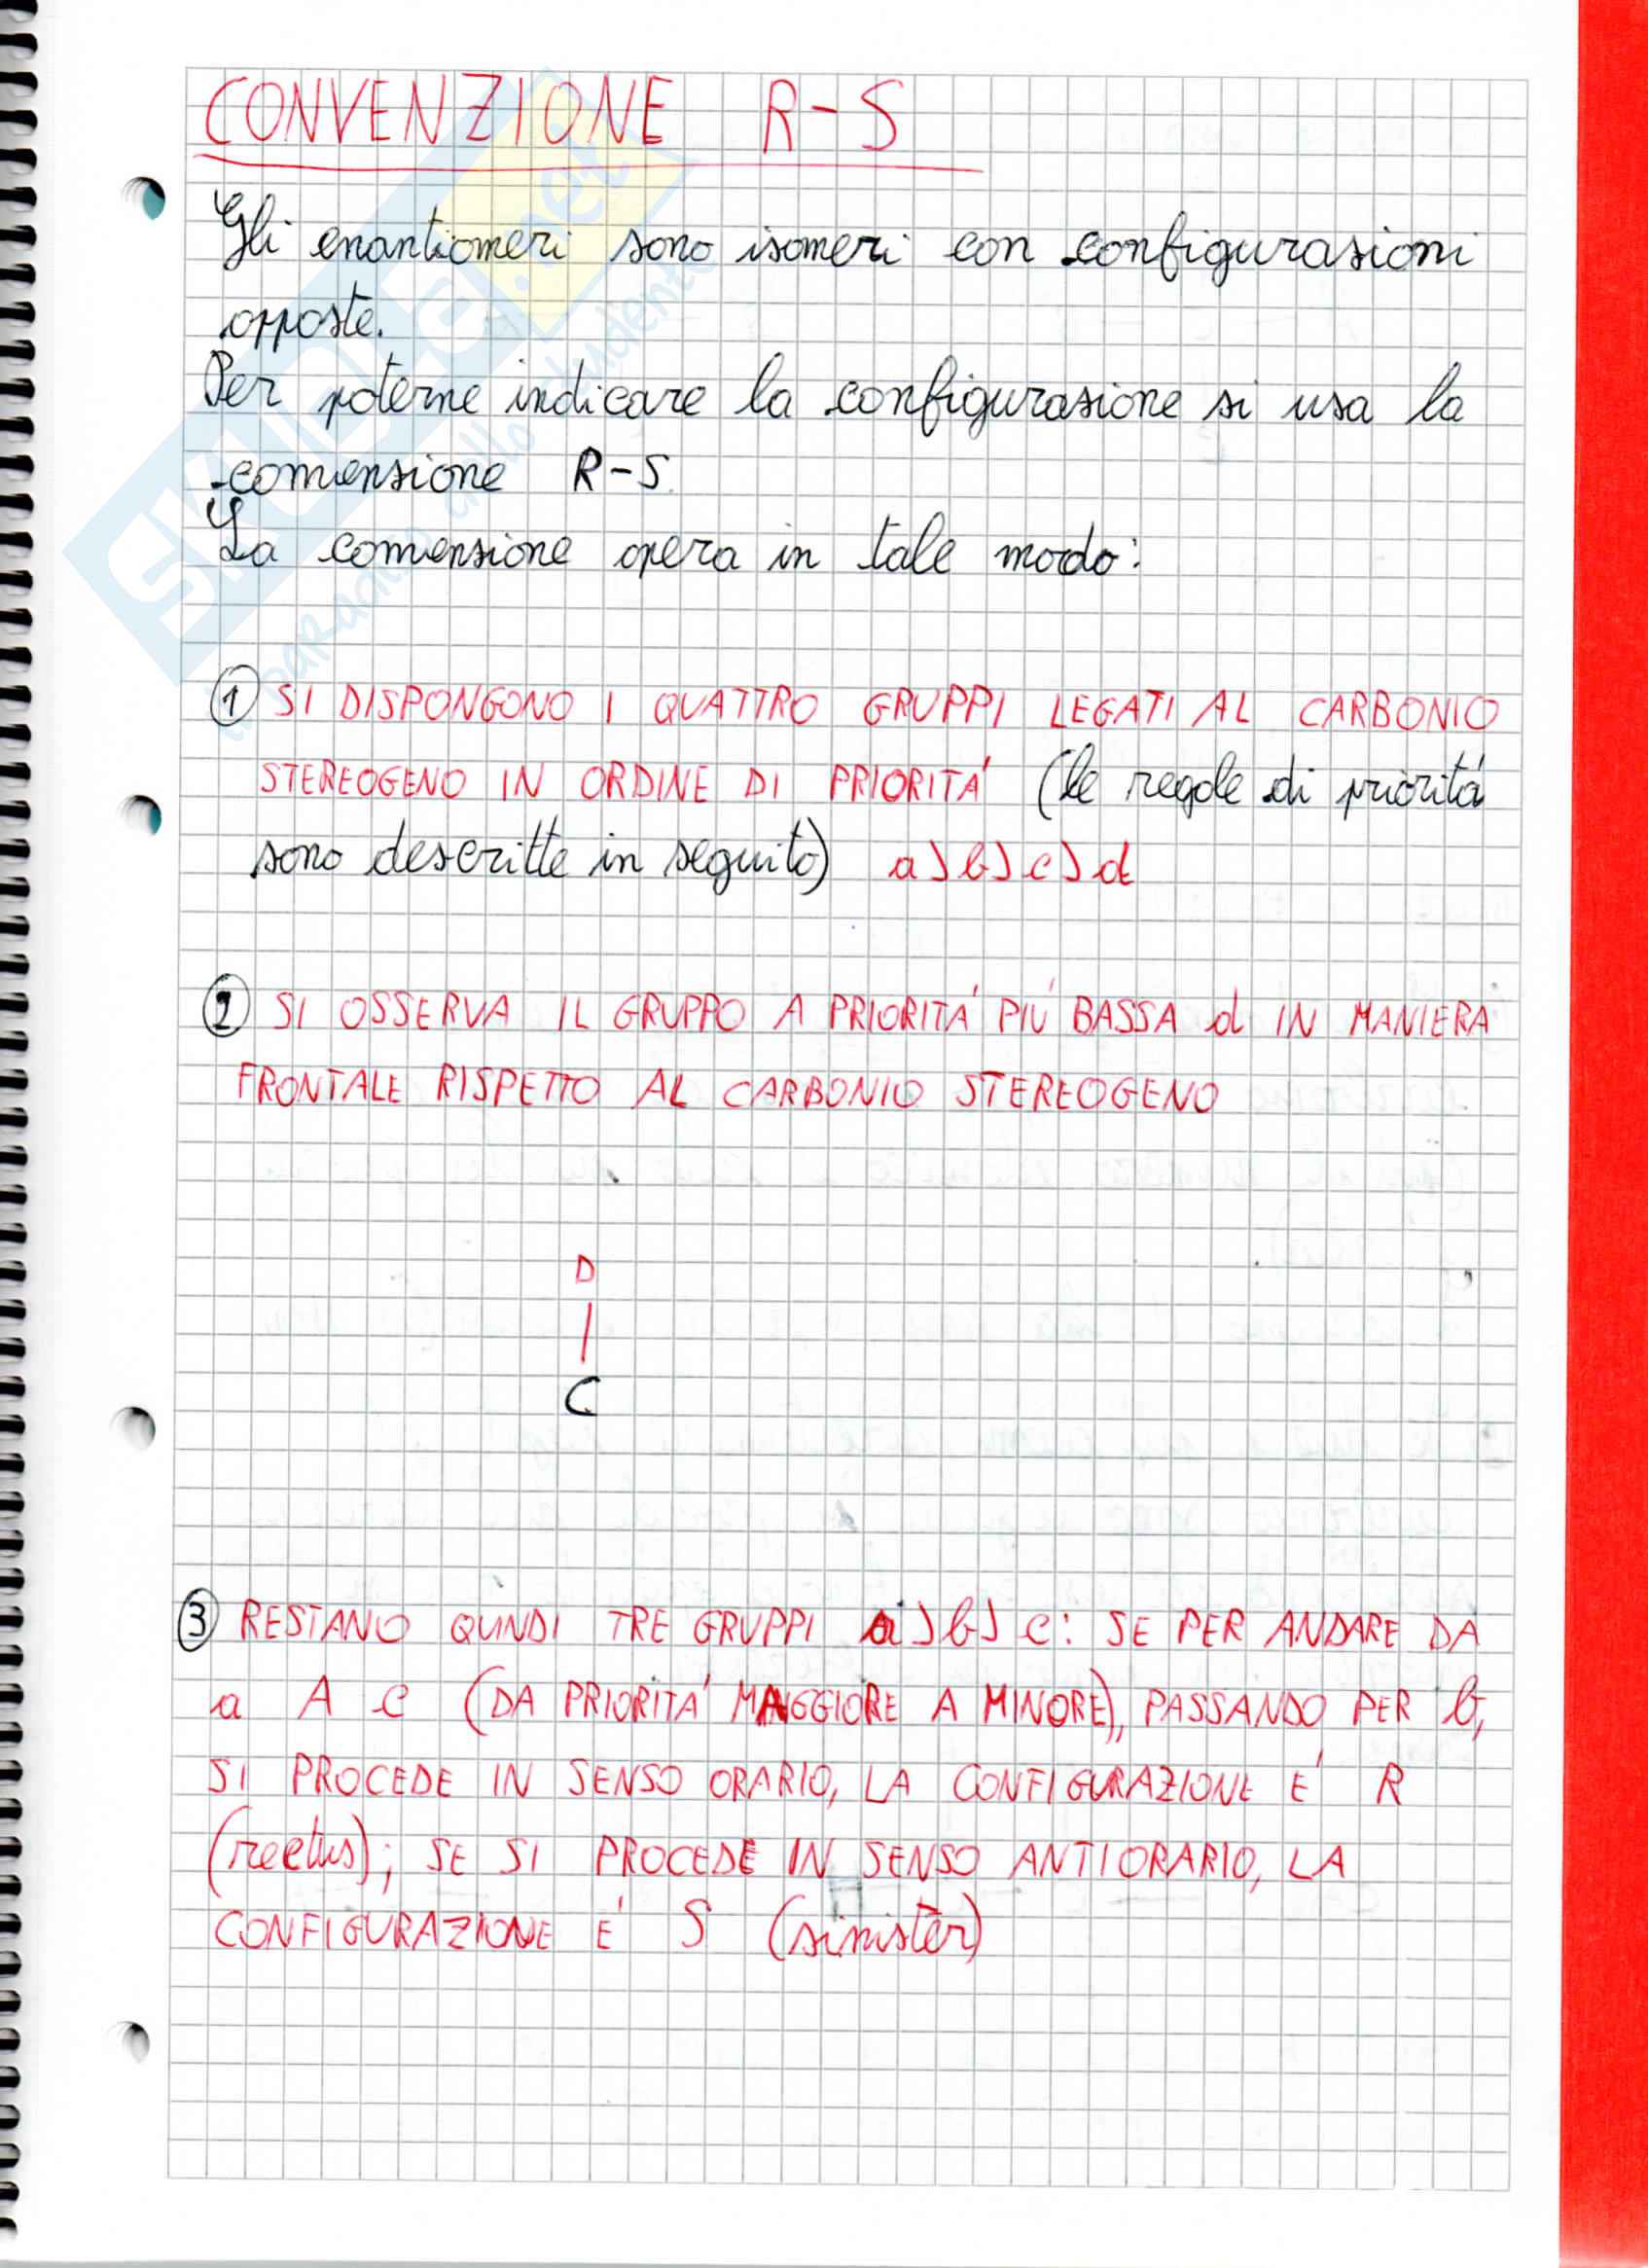 CONVENZIONE R-S
Gli enantiomeri sono isomeri con configurazioni
opposte.
Per poterne indicare la configurazione si usa la
convenzione R-S.
La convenzione opera in tale modo:
1 SI DISPONGONO I QUATTRO GRUPPI LEGATI AL CARBONIO
STEREOGENO IN ORDINE DI PRIORITÁ (le regole di prioritá
sono descritte in seguito) a > b > c > d
2 SI OSSERVA IL GRUPPO A PRIORITÁ PIÚ BASSA d IN MANIERA
FRONTALE RISPETTO AL CARBONIO STEREOGENO
D
|
C
3 RESTANO QUINDI TRE GRUPPI a > b > c: SE PER ANDARE DA
a A c (DA PRIORITÁ MAGGIORE A MINORE), PASSANDO PER b,
SI PROCEDE IN SENSO ORARIO, LA CONFIGURAZIONE É R
(rectus); SE SI PROCEDE IN SENSO ANTIORARIO, LA
CONFIGURAZIONE É S (sinister)
SKUOLA.net